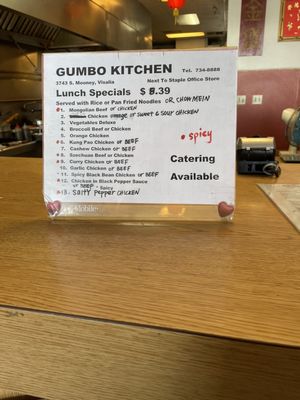 GUMBO KITCHEN Tel. 734-8888
3743 S. Mooney, Visalia Next To Staple Office Store
Lunch Specials $ 8.39
Served with Rice or Pan Fried Noodles OR, CHOWMEIN
1. Mongolian Beef or CHICKEN
2. Chicken or SWEET & SOUR CHICKEN
3. Vegetables Deluxe
4. Broccoli Beef or Chicken
5. Orange Chicken
• spicy
6. Kung Pao Chicken or BEEF
7. Cashew Chicken or BEEF
8. Szechuan Beef or Chicken
9. Curry Chicken or BEEF
Catering
10. Garlic Chicken or BEEF
11. Spicy Black Bean Chicken or BEEF
Available
12. Chicken in Black Pepper Sauce
or BEEF - Spicy
13. Salty Pepper CHICKEN
Mobile